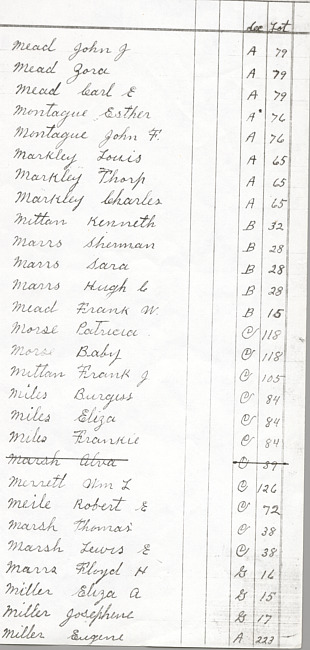 Sec Lot
Mead John J A 79
Mead Zora A 79
Mead Carl E A 79
Montague Esther A 76
Montague John F. A 76
Markley Louis A 65
Markley Thorp A 65
Markley Charles A 65
Mittan Kenneth B 32
Marrs Sherman B 28
Marrs Sara B 28
Marrs Hugh C B 28
Mead Frank W. B 15
Morse Patricia C 118
Morse Baby C 118
Mittan Frank J C 105
Miles Burgess C 84
Miles Eliza C 84
Miles Frankie C 84
Marsh Alva C 39
Merrett Wm L C 126
Meile Robert E C 72
Marsh Thomas C 38
Marsh Lewis E C 38
Marrs Floyd H G 16
Miller Eliza A G 15
Miller Josephene G 17
Miller Eugene A 223